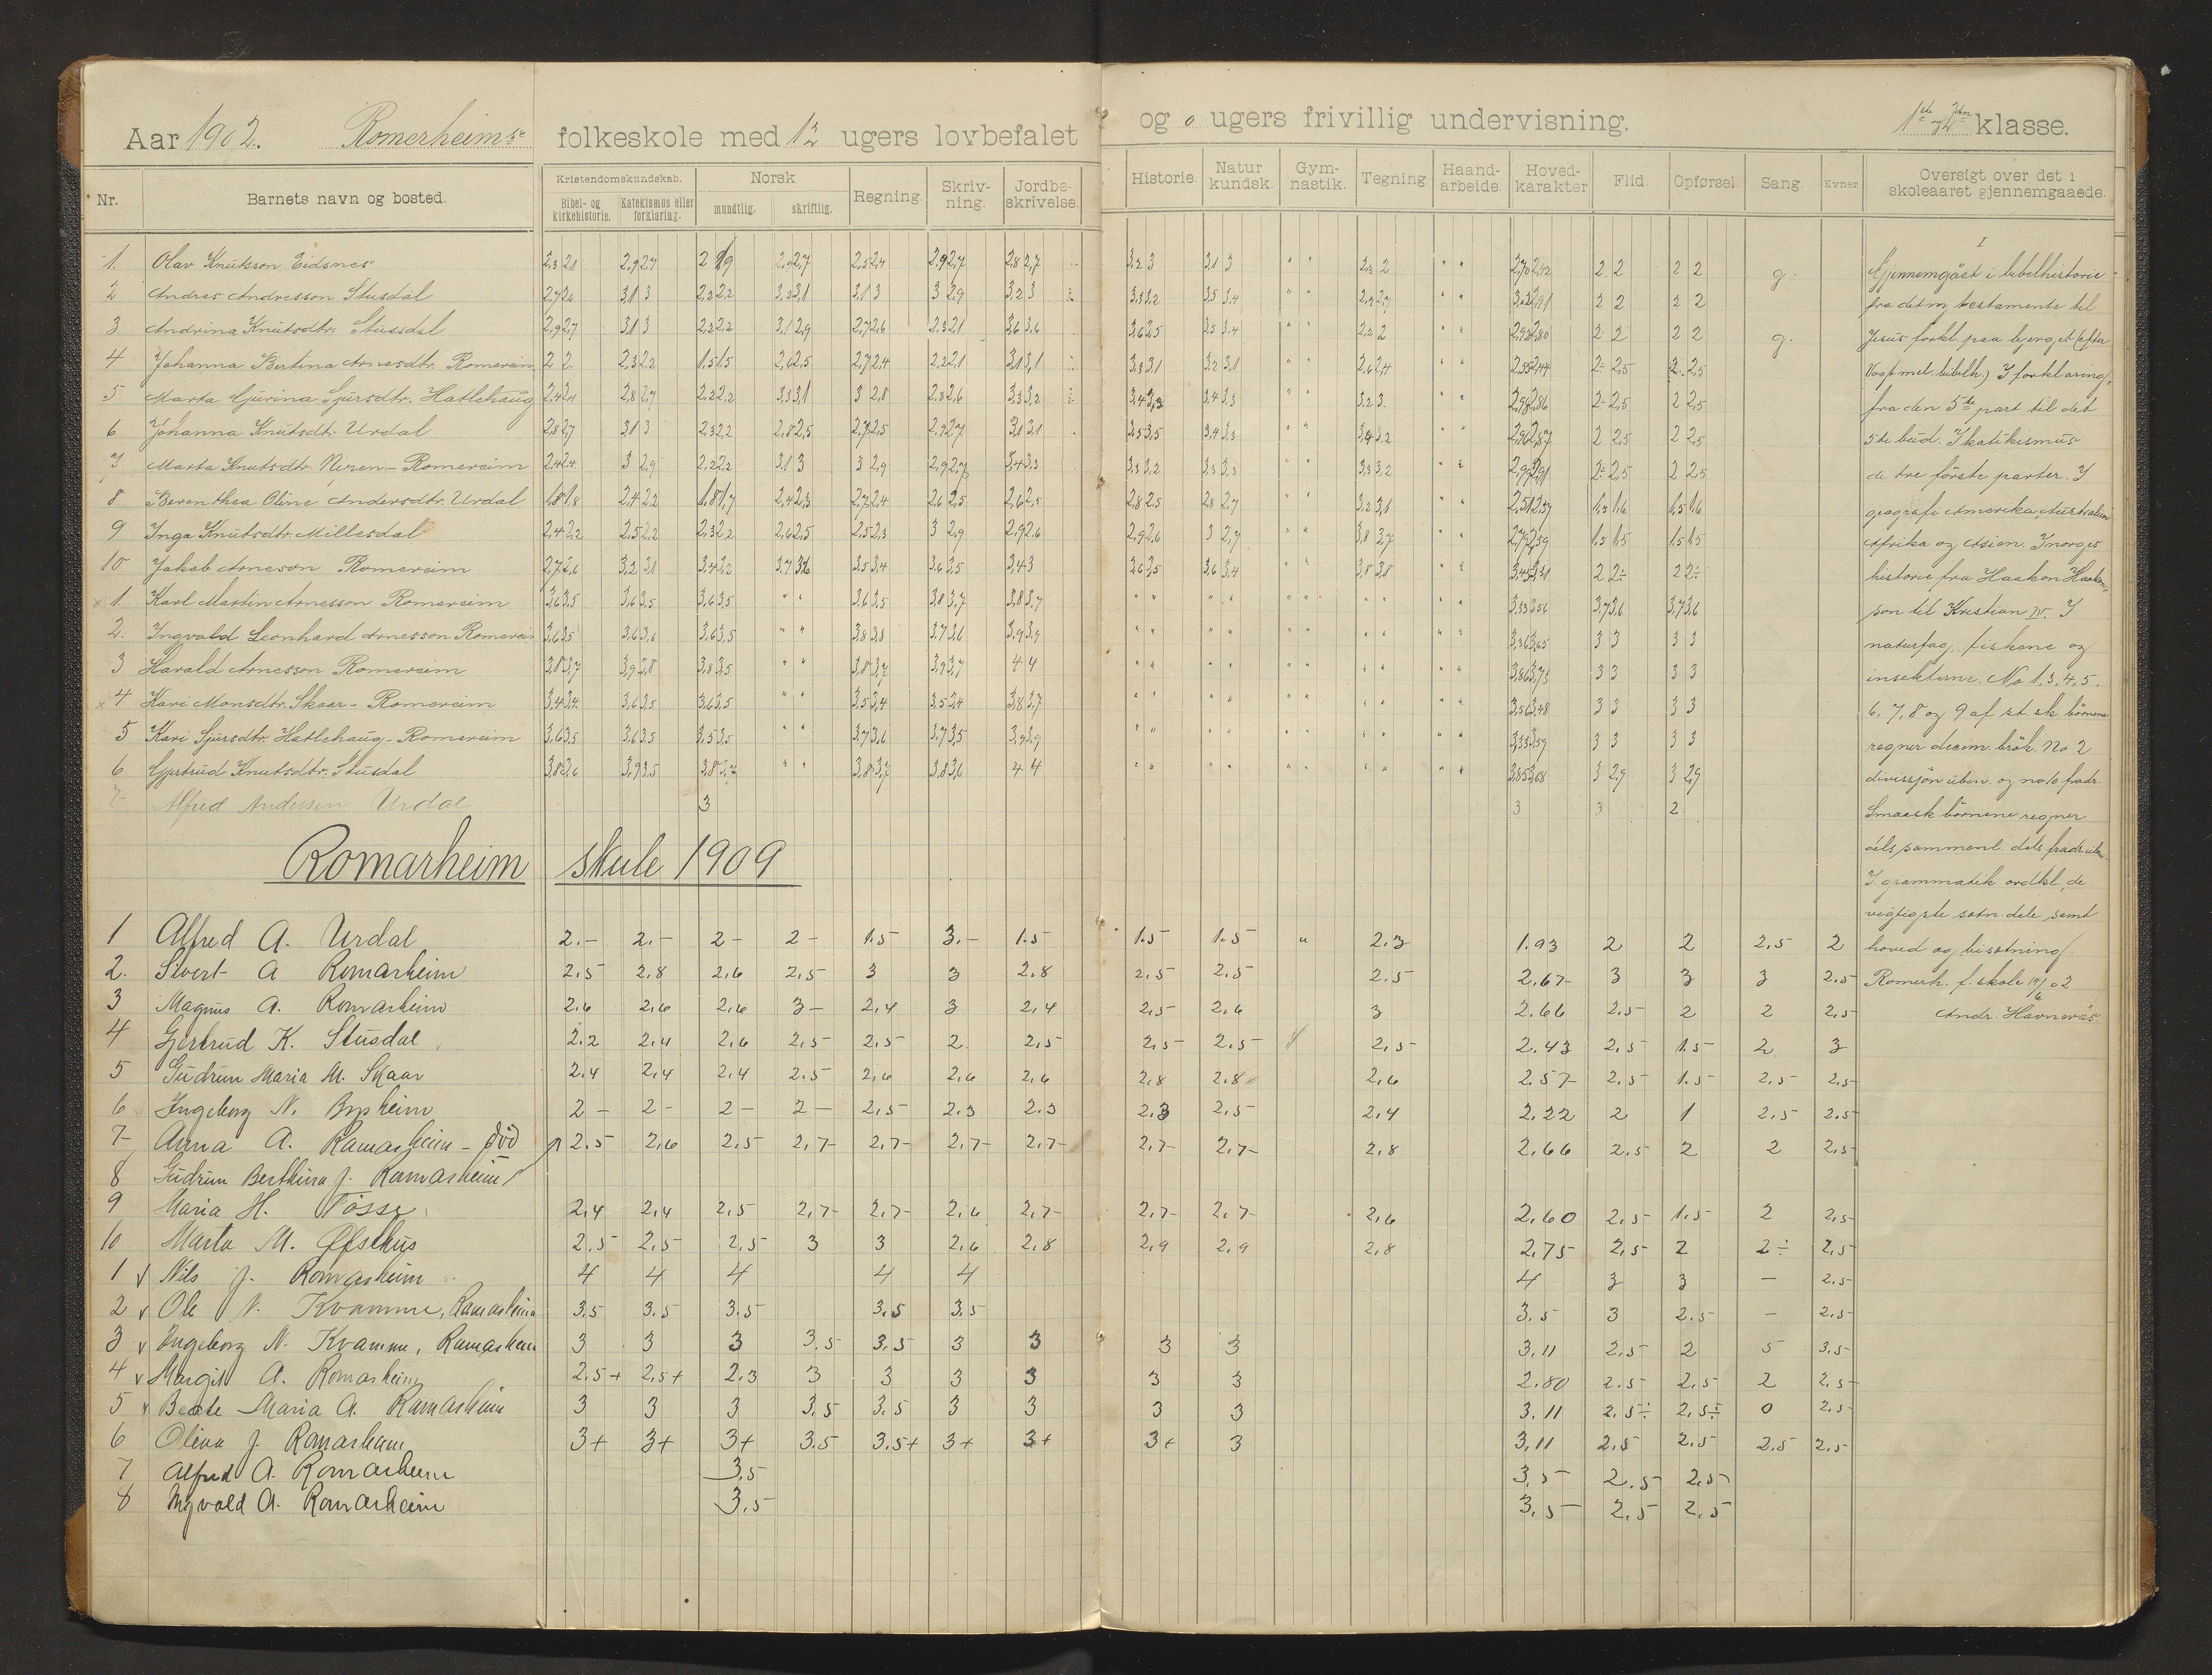 Aar 1902. Romerheims folkeskole med 12 ugers lovbefalet og 0 ugers frivillig undervisning. 1ste og 2den klasse.
Nr. Barnets navn og bosted. Kristendomskundskab. Bibel- og kirkehistorie. Katekismus eller forklaring. Norsk mundtlig. skriftlig. Regning. Skrivning. Jordbeskrivelse. Historie. Naturkundsk. Gymnastik. Tegning. Haandarbeide. Hovedkarakter Flid. Opførsel. Sang. Evner. Oversigt over det i skoleaaret gjennemgaaede.
1. Olav Knutsson Eidsnes 2,3 2,1 2,9 2,7 2,9 2,7 2,5 2,4 2,9 2,7 2,8 2,7 3,2 3 3,1 3 " " " " 2 2 2 2 g.
2 Andres Andresson Stusdal 3,1 3 2,2 2,2 3,1 3 3 2,9 3,2 3 3,3 3,2 3,5 3,4 " " 2,9 2,7 " " 2 2 2 2
3 Andrina Knutsdtr. Stusdal 2,9 2,7 3,1 3 2,2 2,2 3,1 2,9 2,7 2,6 2,3 2,1 3,6 3,6 3,6 3,5 3,5 3,4 " " 2,2 2 " " 2,93 2,80 2 2 2 2 g.
4 Johanna Bertina Arnesdtr. Romereim 2 2 2,3 2,2 1,5 1,5 2,6 2,5 2,7 2,4 2,2 2,1 3,1 3,1 3,3 3,1 3,2 3,1 " " 2,6 2,4 " " 2 2,5 2 2,5
5 Marta Gurina Sjursdtr. Hatlehaug 2,4 2,4 2,8 2,7 2,2 2,2 3,3 3,1 3 2,8 2,8 2,6 3,3 3,2 3,4 3,3 3,4 3,3 " " 3,2 3 " " 2,98 2,86 2 2,5 2 2,5
6 Johanna Knutsdtr. Urdal 2,8 2,7 3,1 3 2,3 2,2 2,8 2,5 2,7 2,5 2,9 2,7 3,1 3,1 3,5 3,5 3,4 3,3 " " 3,4 3,2 " " 2,96 2,87 2 2,5 2 2,5
7 Marta Knutsdtr. Neren - Romereim 2,4 2,4 3 2,9 2,2 2,2 3,1 3 3 2,9 2,9 2,7 3,4 3,3 3,3 3,2 3,3 3,3 " " 3,3 3,2 " " 2,99 2,91 2 2,5 2 2,5
8 Berenthea Oline Andersdtr. Urdal 1,8 1,8 2,4 2,2 1,8 1,7 2,4 2,3 2,7 2,4 2,6 2,5 2,6 2,5 2,8 2,5 2,8 2,7 " " 3,2 3,1 " " 2,51 2,37 1,5 1,6 1,5 1,6
9 Inga Knutsdtr. Millesdal 2,4 2,2 2,5 2,2 2,3 2,2 2,6 2,5 2,5 2,3 3 2,9 2,9 2,6 2,9 2,6 3 2,7 " " 3,8 3,7 " " 2,79 2,59 1,5 1,5 1,5 1,5
10 Jakob Arneson Romereim 2,7 2,6 3,2 3,1 3,4 3,2 3,7 3,6 3,5 3,4 3,6 3,5 3,4 3 3,6 3,5 3,6 3,4 " " 3,8 3,8 " " 3,45 3,31 2 2÷ 2 2÷
1. Karl Martin Arnesson Romereim 3,6 3,5 3,6 3,5 3,6 3,5 " " 3,6 3,5 3,8 3,7 3,8 3,7 " " " " " " " " " " 3,7 3,6 3,7 3,6
2. Ingvald Leonhard Arnesson Romereim 3,6 3,5 3,6 3,6 3,6 3,5 " " 3,8 3,8 3,7 3,6 3,9 3,9 " " " " " " " " " " 3 3 3 3
3 Harald Arnesson Romereim 3,8 3,7 3,9 3,8 3,8 3,5 " " 3,8 3,7 3,9 3,7 4 4 " " " " " " " " " " 3,86 3,73 3 3 3 3
4 Kari Monsdtr. Skaar - Romereim 3,4 3,4 3,6 3,5 3,6 3,5 " " 3,5 3,4 3,5 3,4 3,8 3,7 " " " " " " " " " " 3,56 3,48 3 3 3 3
5 Kari Sjursdtr. Hatlehaug - Romereim 3,6 3,5 3,6 3,5 3,5 3,5 " " 3,7 3,6 3,7 3,5 3,9 3,9 " " " " " " " " " " 3 3 3 3
6 Gjertrud Knutsdtr. Stusdal 3,8 3,6 3,9 3,5 3,8 3,7 " " 3,8 3,7 3,8 3,6 4 4 " " " " " " " " " " 3,85 3,68 3 2,9 3 2,9
7 Alfred Andersen Urdal 3 3 3 2
Romarheim skule 1909
1 Alfred A. Urdal 2.- 2.- 2- 2- 1.5 3.- 1.5 1.5 1.5 " 2.3 1.93 2 2 2,5 2
2. Sivert A Romarheim 2,5 2,8 2,6 2,5 3 3 2,8 2,5 2,5 2.5 2.67 3 3 3 2,5
3 Magnus A. Romarheim 2,6 2,6 2,6 3- 2,4 3 2,4 2,5 2,6 3 2.66 2,5 2 2 2,5
4 Gertrud K. Stusdal 2,2 2,4 2,6 2,5 2,5 2 2,5 2,5 2,5 2,5 2.43 2,5 1.5 2 3
5 Gudrun Maria M. Skaar 2,4 2,4 2,4 2.5 2,6 2,6 2,6 2,8 2,8 2,6 2.57 2,5 1.5 2,5 2,5
6 Ingeborg N. Bysheim 2- 2- 2- 2- 2,5 2.3 2.3 2,3 2,5 2,4 2.22 2 1 2,5 2,5
7 Anna A. Romarheim - død 2.5 2,6 2,5 2,7 2,7 2,7 2,7 2,7 2,7 2,8 2,66 2,5 2 2 2,5
8 Gudrun Berthina J. Romarheim
9 Maria H. Tosse 2,4 2,4 2,5 2,7 2,7 2,6 2,7 2,7 2,7 2,6 2.60 2,5 1.5 2 2,5
10 Marta M. Øfsthus 2,5 2,5 2,5 3 3 2,6 2,8 2,9 2,9 2,8 2,75 2,5 2 2÷ 2,5
1 v Nils J. Romarheim 4 4 4 4 4 4 3 3 - 2,5
2 v Ole N. Kvamme, Romarheim 3.5 3.5 3.5 3.5 3.5 3.5 3 2.5 - 2,5
3 v Ingeborg N. Kvamme, Romarheim 3 3 3 3,5 3,5 3 3 3 3 3,11 2,5 2 5 3,5
4 v Margit A. Romarheim 2.5+ 2,5+ 2,3 3 3 3 3 3 3 2.80 2,5 2,5 2 2,5
5 v Beate Maria A. Romarheim 3 3 3 3,5 3,5 3 3 3 3 3,11 2,5÷ 2,5÷ 0 2,5
6 Olina J. Romarheim 3+ 3+ 3+ 3.5 3.5+ 3+ 3+ 3+ 3 3,11 2.5 2.5 2.5 2,5
7 Alfred A. Romarheim 3,5 3,5 2.5 2,5
8 Ingvald A. Romarheim 3,5 3.5 2.5 2,5
I
Gjennemgået i bibelhistorie
fra det ny testamente til
Jesus forkl. paa bjerget (efter
Vogt mel. bibelh.) I forklaring
fra den 5te part til det
5te bud. I katikismus
de tre første parter. I
geografi Amerika, Australien
Afrika og Asien. I norges
historie fra Haakon Haakon-
son til Kristian IV. I
naturfag, fiskene og
insekterne. No 1, 3, 4, 5,
6, 7, 8 og 9 af st. sk. børnene
regner decim. brøk. No 2
divissjon uben. og no 10 fradr.
Smaask børnene regner
dels sammenl. dels fradr. uben.
I grammatik ordkl., de
vigtigste setn. dele samt
hoved og bisetning.
Romerh. f. skole 14/6 02
Andr. Havnerås